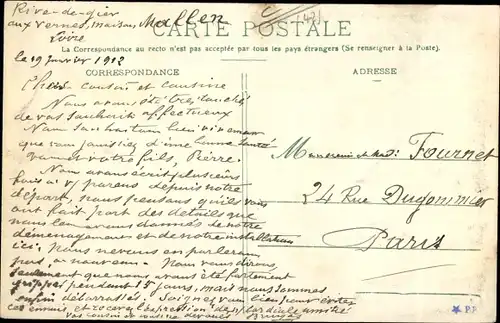 Rive-de-gier
aux Vernes, maison Mallen
Loire
le 19 Janvier 1912
(421)
CARTE POSTALE
La Correspondance au recto n'est pas acceptée par tous les pays étrangers (Se renseigner à la Poste).
CORRESPONDANCE
ADRESSE
Chers cousin et cousine
Nous avons été très touchés
de vos souhaits affectueux
Nous souhaitons bien vivement
que vous jouissiez d'une bonne santé
votre fils, Pierre.
Nous avons écrit plusieurs
fois à vos parents depuis notre
départ, nous pensons qu'ils vous
ont fait part des détails que
nous leur avons donnés de notre
déménagement et de notre installation
ici. nous n'en parlerons
pas à nouveau. Nous vous dirons
seulement que nous avons été fortement
grippés pendant 15 jours, mais nous sommes
enfin débarrassés. Soignez vous bien pour éviter
ces ennuis et recevez l'expression de cordiale amitié
Vos cousin et cousine dévoués
Monsieur et Mad: Fournet
24 Rue Dugommier
Paris
P.F.